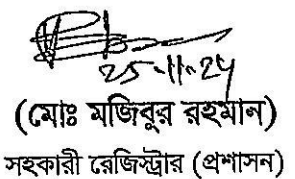 25-11-24
(মোঃ মজিবুর রহমান)
সহকারী রেজিস্ট্রার (প্রশাসন)